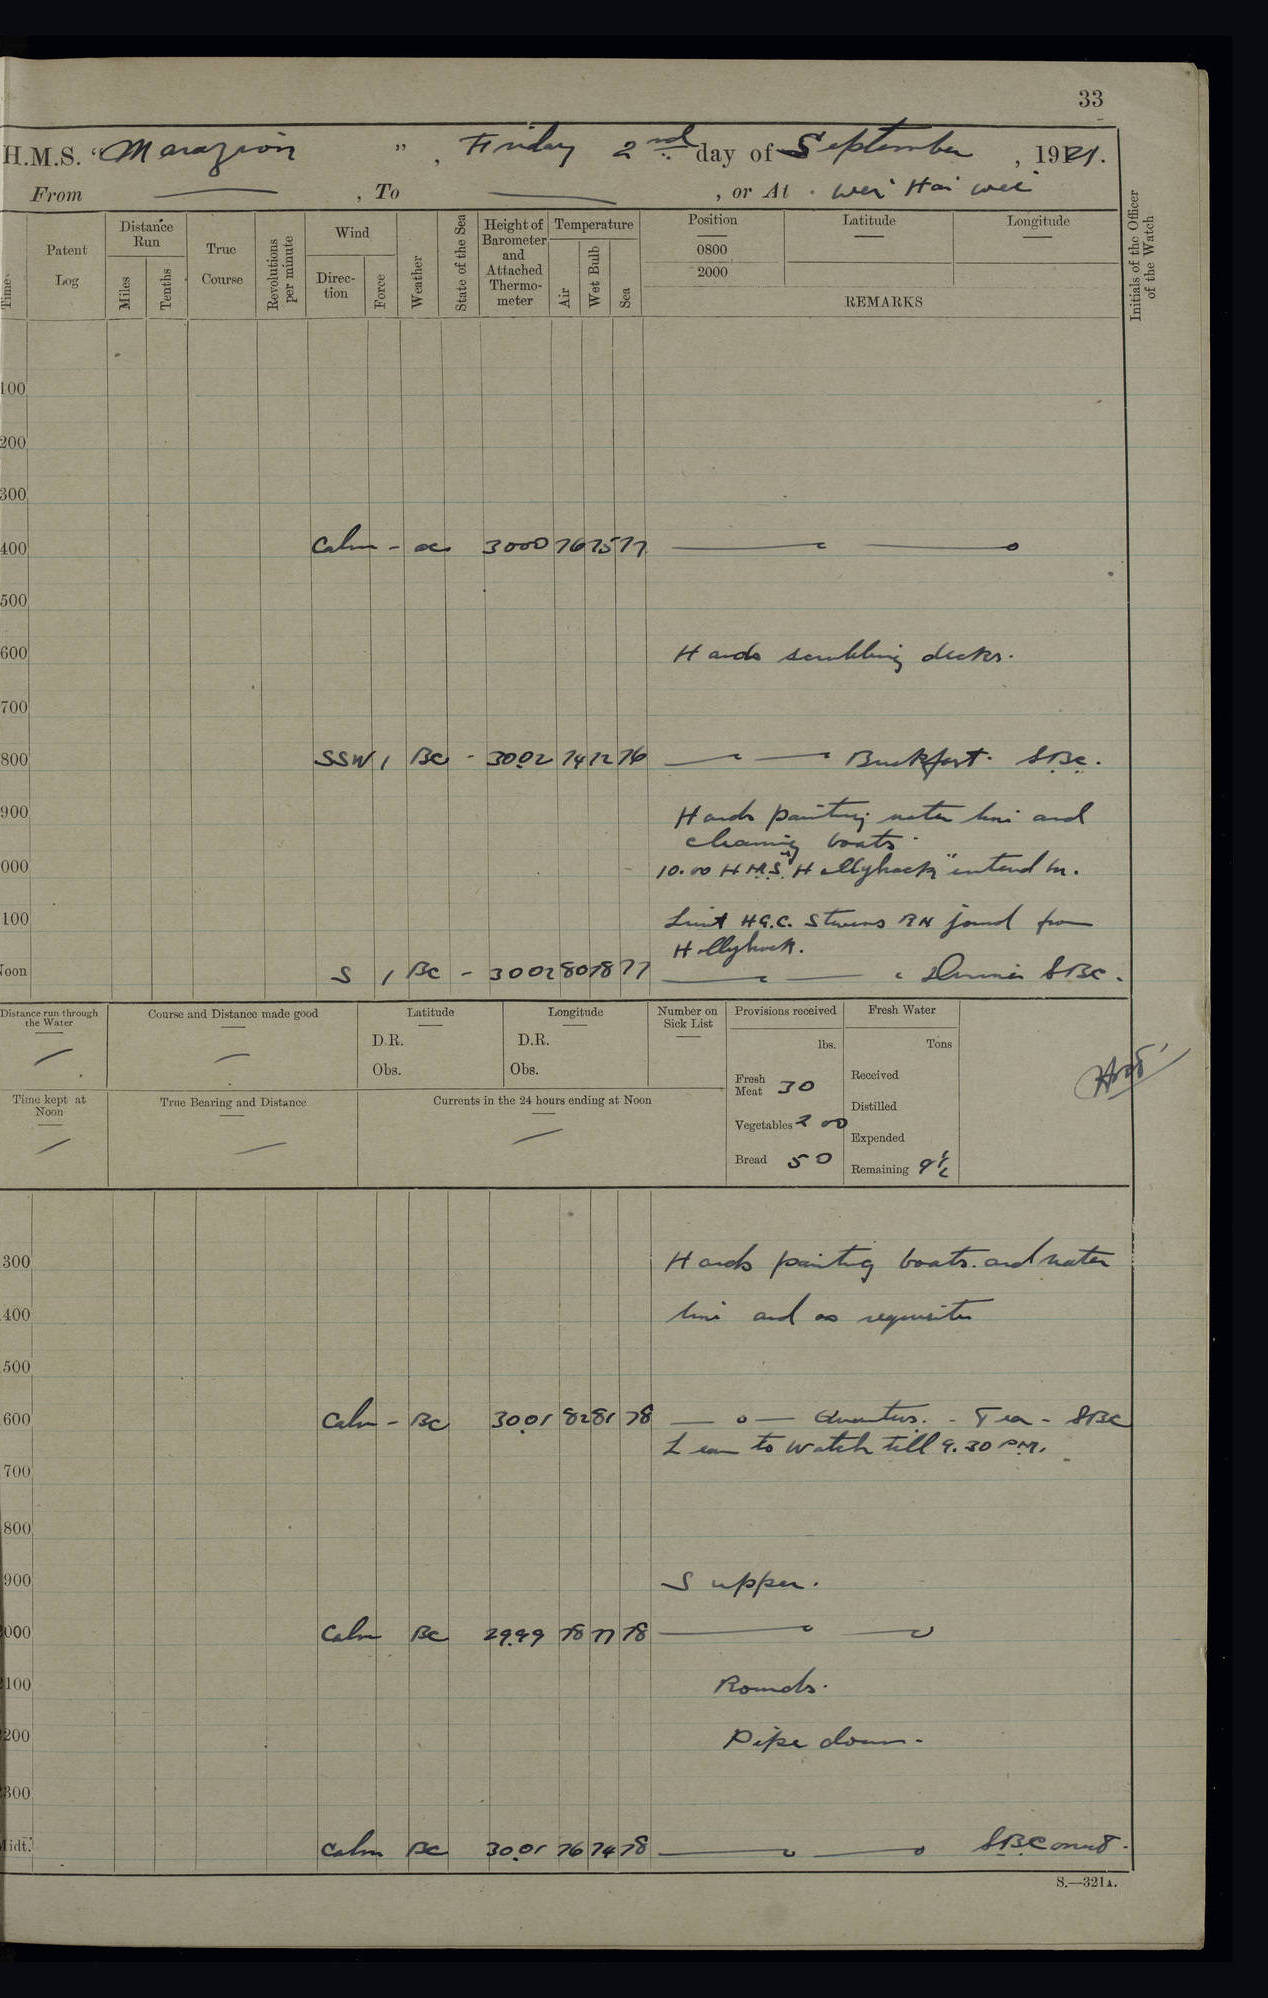 33
H.M.S. "Marazion", Friday 2nd day of September, 1921.
From —, To —, or At Wei Hai Wei
Time
Patent Log
Distance Run
Miles
Tenths
True Course
Revolutions per minute
Wind
Direction
Force
Weather
State of the Sea
Height of Barometer and Attached Thermometer
Temperature
Air
Wet Bulb
Sea
Position
0800
2000
Latitude
Longitude
REMARKS
Initials of the Officer of the Watch
100
200
300
400 Calm - 3000 76 75 77
500
600 Hands scrubbing decks.
700
800 SSW 1 BC - 30.02 74 72 76 Breakfast. SBC.
900 Hands painting water line and
cleaning boats.
000 10.00 H.M.S. "Hollyhock" entered hr.
100 Lieut H.G.C. Stevens RN joined from
Hollyhock.
Noon S 1 BC - 3002 80 78 77 Dinner SBC.
Distance run through the Water
Course and Distance made good
Latitude
D.R.
Obs.
Longitude
D.R.
Obs.
Number on Sick List
Provisions received
lbs.
Fresh Meat 30
Vegetables 200
Bread 50
Fresh Water
Tons
Received
Distilled
Expended
Remaining 9½
Time kept at Noon
True Bearing and Distance
Currents in the 24 hours ending at Noon
300 Hands painting boats. and water
400 line and as requisite
500
600 Calm - BC 30.01 82 81 78 Quarters. - Tea - SBC
Leave to Watch till 9.30 PM.
700
800
900 Supper.
000 Calm BC 29.99 78 77 78
100 Rounds.
200 Pipe down.
300
Midt. Calm BC 30.01 76 74 78 SBC
S.—321A.